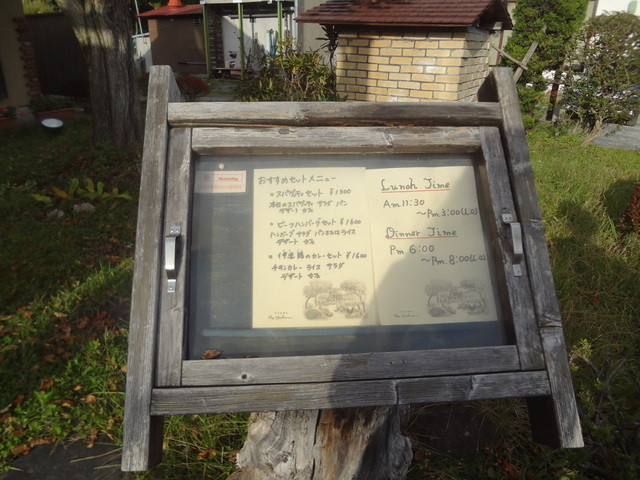 おすすめセットメニュー
• スパゲティセット ¥1500
本日のスパゲティ サラダ パン
デザート カフェ
• ビーフハンバーグセット ¥1600
ハンバーグ サラダ パンまたはライス
デザート カフェ
のカレーセット ¥1600
チキンカレー ライス サラダ
デザート カフェ
Lunch Time
Am.11:30
～Pm.3:00(L.O)
Dinner Time
Pm 6:00
～Pm.8:00(L.O.)